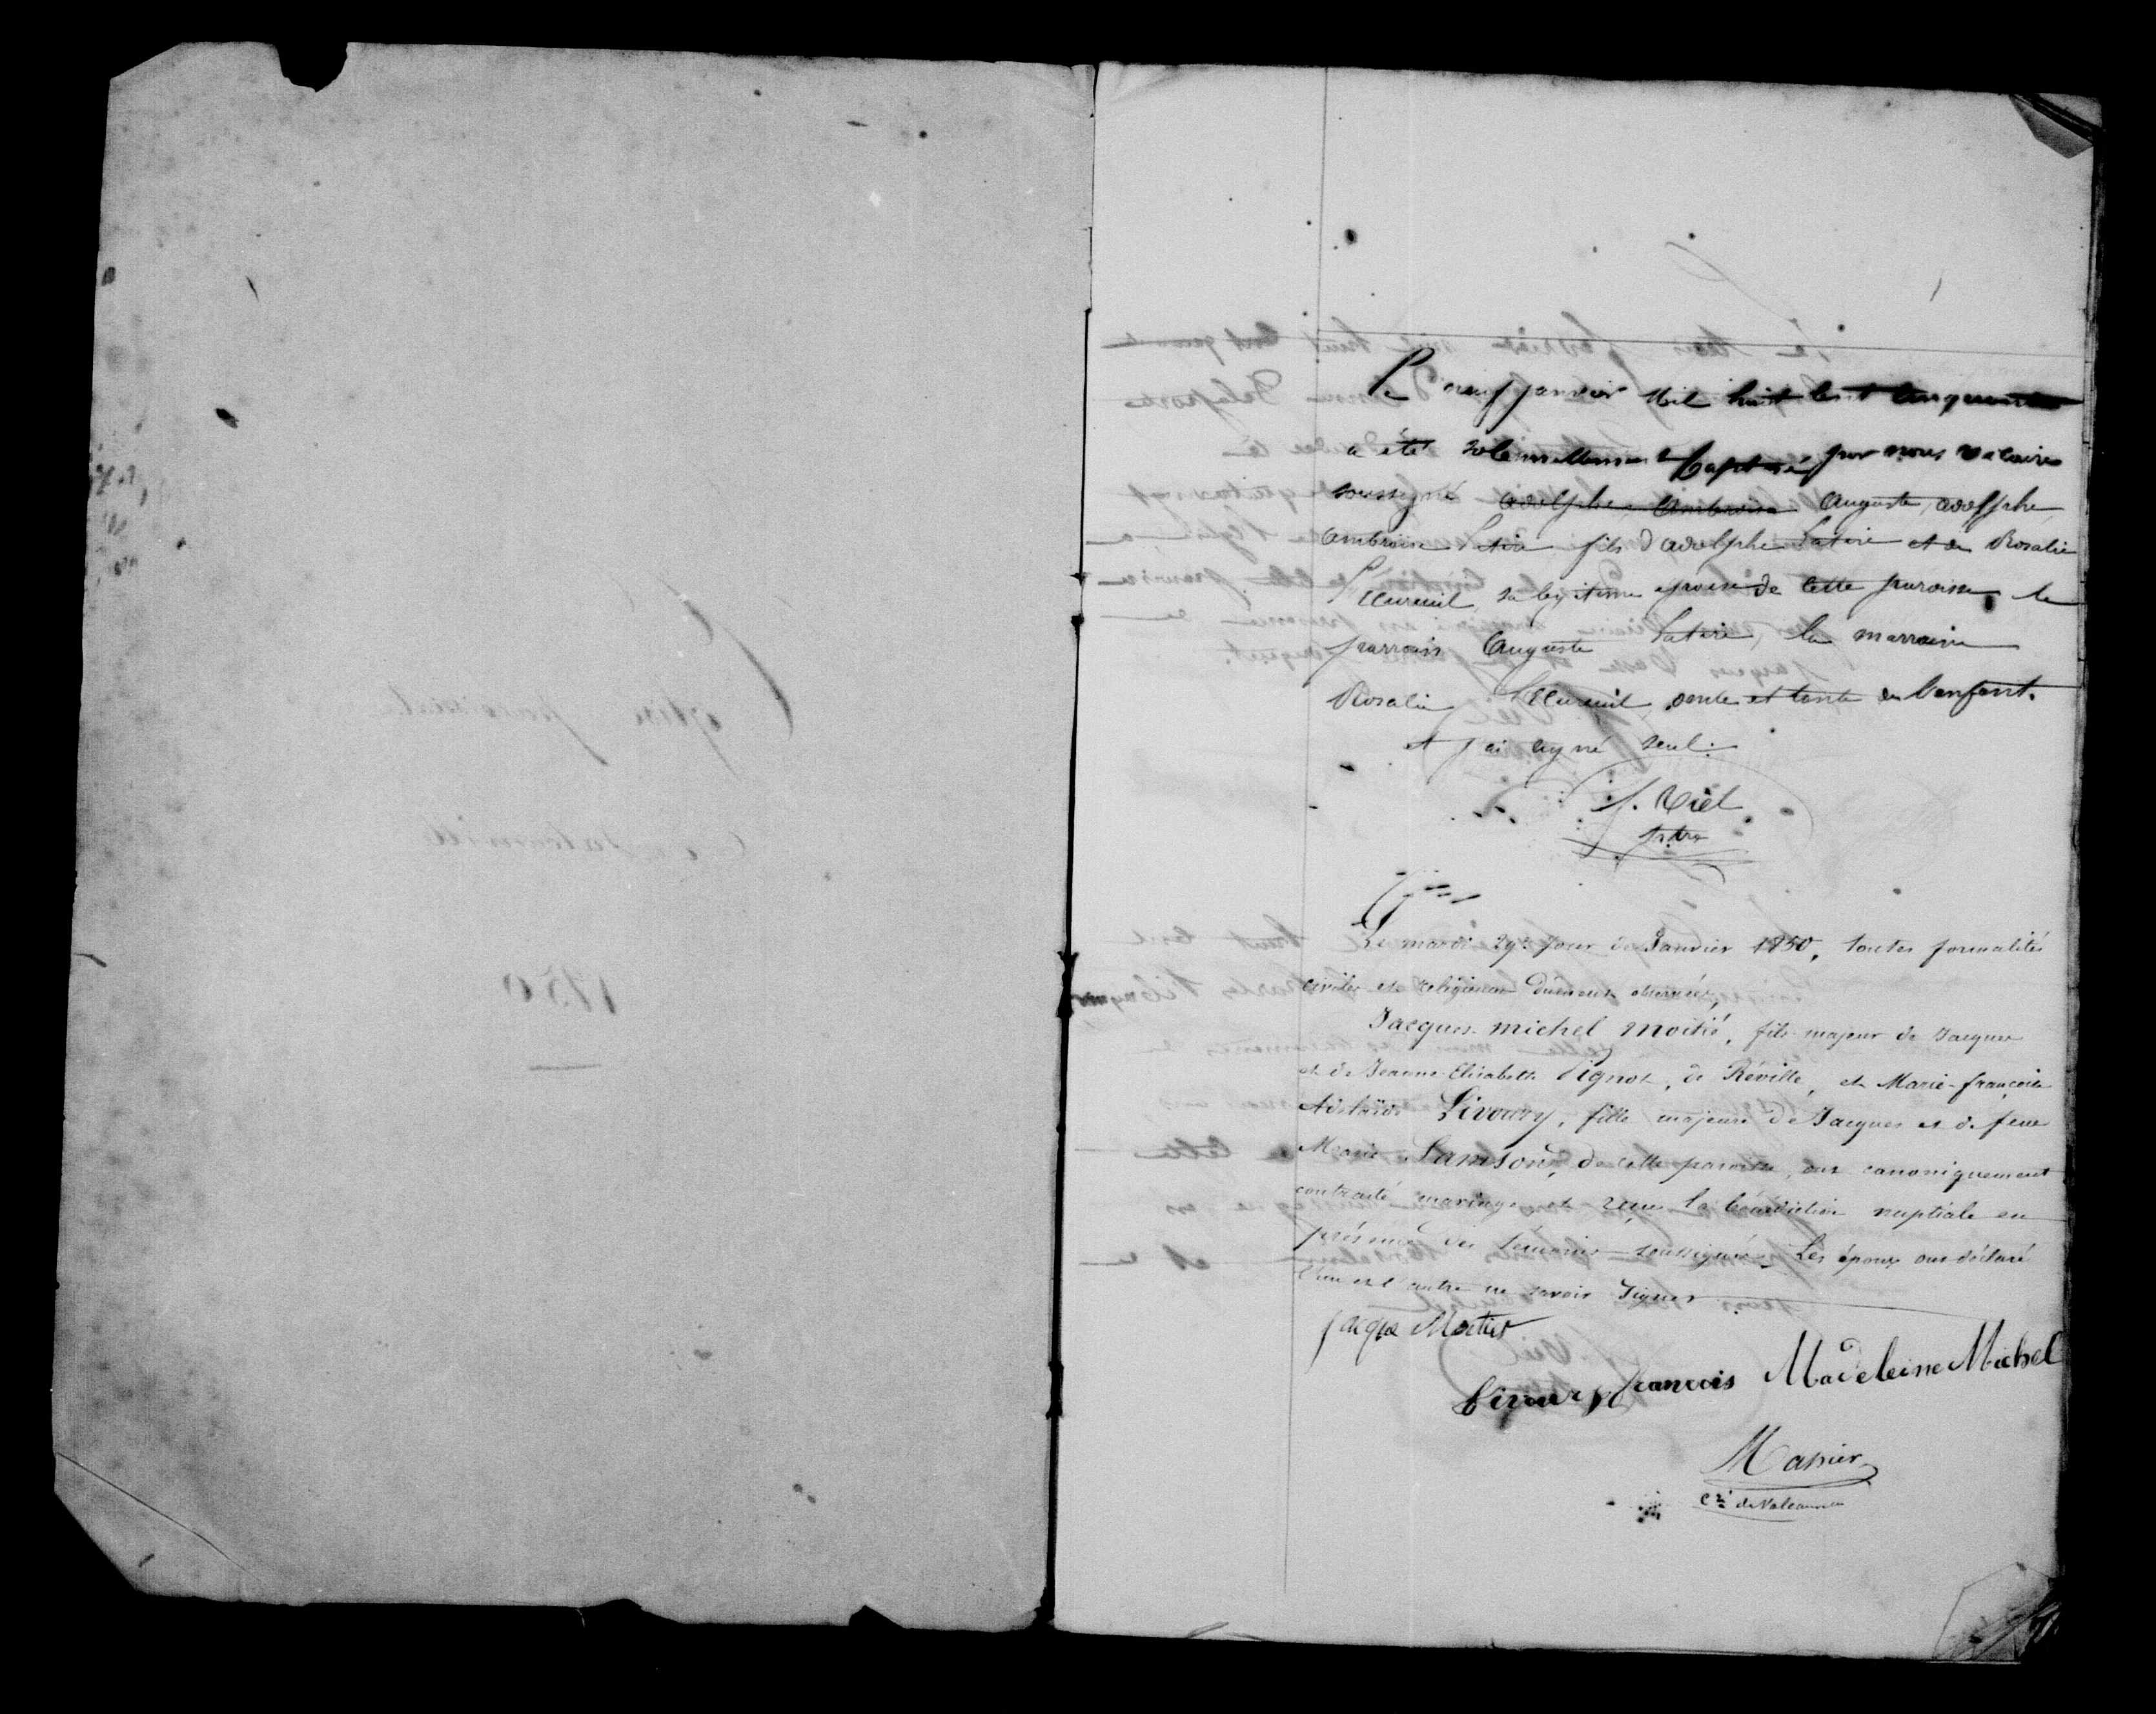 1
Le neuf janvier Mil huit cent cinquante
a été solemnellement baptisé par nous vicaire
soussigné Adolphe, Ambroise Auguste, adolphe,
Ambroise fils d'adolphe et de Rosalie
sa legitime epouse de cette paroisse le
parrain Auguste la marraine
Rosalie oncle et tante de l'enfant.
et j'ai signé seul.
J. Viel
ptre
Le mardi 29e jour de Janvier 1850, toutes formalités
civiles et religieuses dûment observées,
Jacques-michel Moitié, fils majeur de Jacques
et de Jeanne-Elisabeth Pignot, de Réville, et Marie-françoise
Adelaïde Sivoury, fille majeure de Jacques et de feue
Marie Samson, de cette paroisse, ont canoniquement
contracté mariage et reçu la bénédiction nuptiale en
présence des témoins soussignés. Les époux ont déclaré
l'un et l'autre ne savoir signer
françois Madeleine Michel